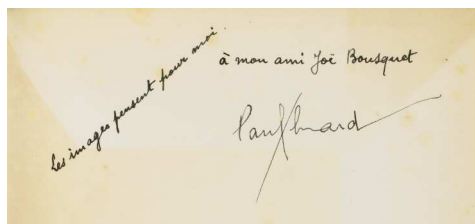 Les images pensent pour moi.
à mon ami Joë Bousquet
Paul Eluard